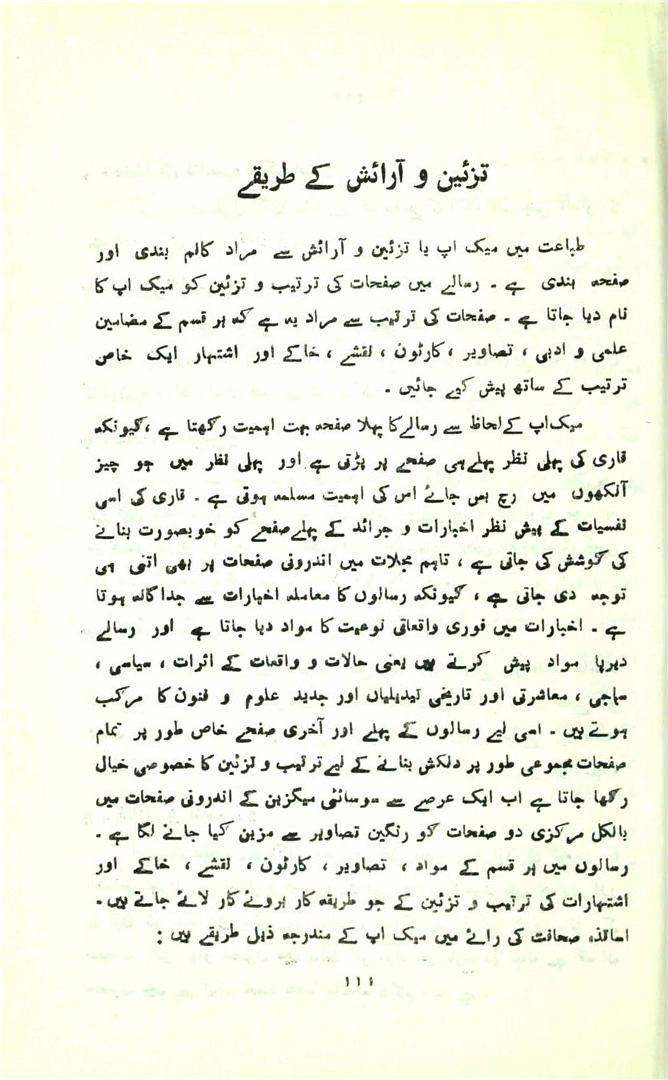 تزئین و آرائش کے طریقے
طباعت میں میک اپ یا تزئین و آرائش سے مراد کالم بندی اور
صفحہ بندی ہے ۔ رسالے میں صفحات کی ترتیب و تزئین کو میک اپ کا
نام دیا جاتا ہے ۔ صفحات کی ترتیب سے مراد یہ ہے کہ ہر قسم کے مضامین
علمی و ادبی ، تصاویر ، کارٹون ، نقشے ، خاکے اور اشتہار ایک خاص
ترتیب کے ساتھ پیش کیے جائیں ۔
میک اپ کے لحاظ سے رسالے کا پہلا صفحہ بہت اہمیت رکھتا ہے ، کیونکہ
قاری کی پہلی نظر پہلے ہی صفحے پر پڑتی ہے اور پہلی نظر میں جو چیز
آنکھوں میں رچ بس جائے اس کی اہمیت مسلمہ ہوتی ہے ۔ قاری کی اسی
نفسیات کے پیش نظر اخبارات و جرائد کے پہلے صفحے کو خوبصورت بنانے
کی کوشش کی جاتی ہے ، تاہم مجلات میں اندرونی صفحات پر بھی اتنی ہی
توجہ دی جاتی ہے ، کیونکہ رسالوں کا معاملہ اخبارات سے جداگانہ ہوتا
ہے ۔ اخبارات میں فوری واقعاتی نوعیت کا مواد دیا جاتا ہے اور رسالے
دیرپا مواد پیش کرتے ہیں یعنی حالات و واقعات کے اثرات ، سیاسی ،
سماجی ، معاشرتی اور تاریخی تبدیلیاں اور جدید علوم و فنون کا مرکب
ہوتے ہیں ۔ اسی لیے رسالوں کے پہلے اور آخری صفحے خاص طور پر تمام
صفحات مجموعی طور پر دلکش بنانے کے لیے ترتیب و تزئین کا خصوصی خیال
رکھا جاتا ہے اب ایک عرصے سے سوسائٹی میگزین کے اندرونی صفحات میں
بالکل مرکزی دو صفحات کو رنگین تصاویر سے مزین کیا جانے لگا ہے ۔
رسالوں میں ہر قسم کے مواد ، تصاویر ، کارٹون ، نقشے ، خاکے اور
اشتہارات کی ترتیب و تزئین کے جو طریقہ کار بروئے کار لائے جاتے ہیں ۔
اساتذہ صحافت کی رائے میں میک اپ کے مندرجہ ذیل طریقے ہیں :
۱۱۱